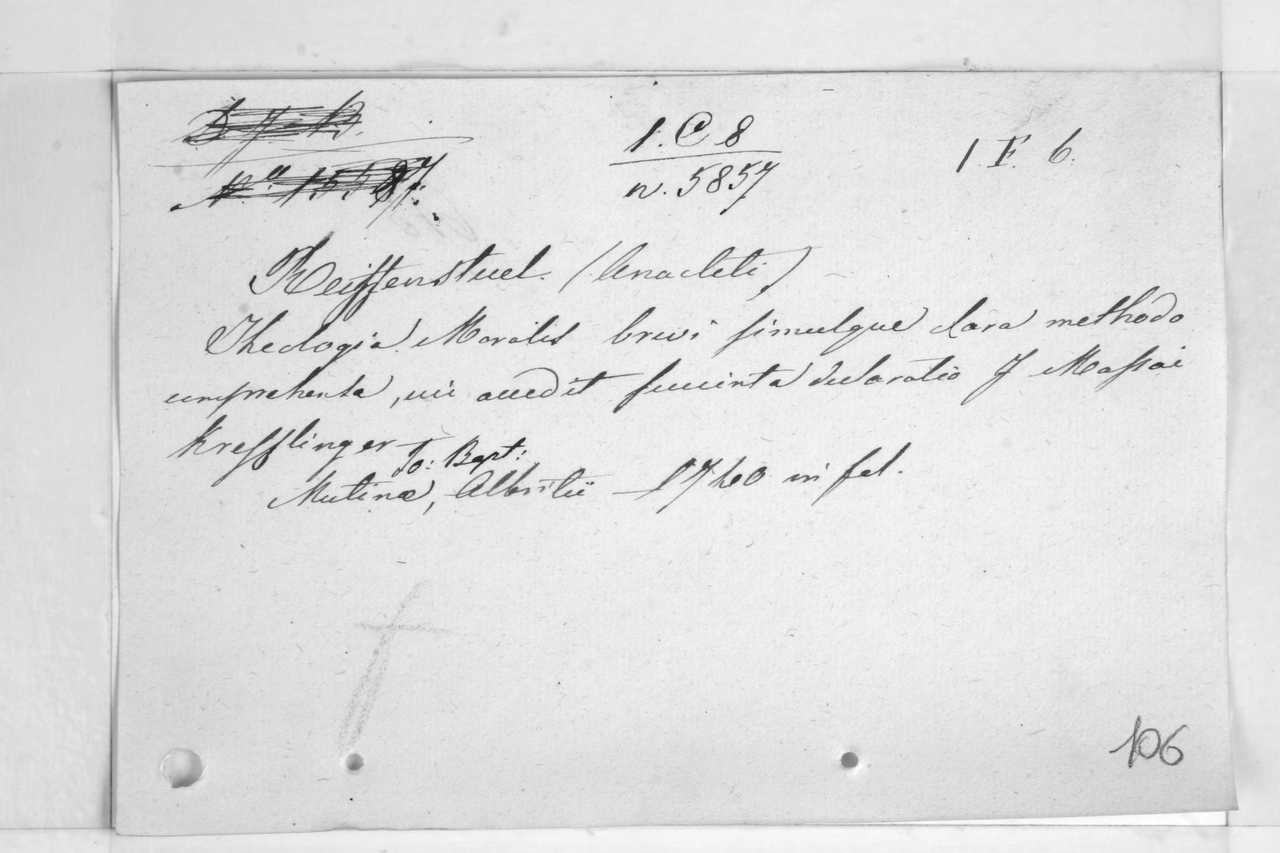 1. C 8
n. 5857
1 F. 6.
Reiffenstuel. (Anacleti)
Theologia Moralis brevi simulque clara methodo
comprehensa, cui accedit succinta declaratio J Massæi
Kresslinger
Jo: Bapt:
Mutinæ, Albritii - 1740 in fol.
106